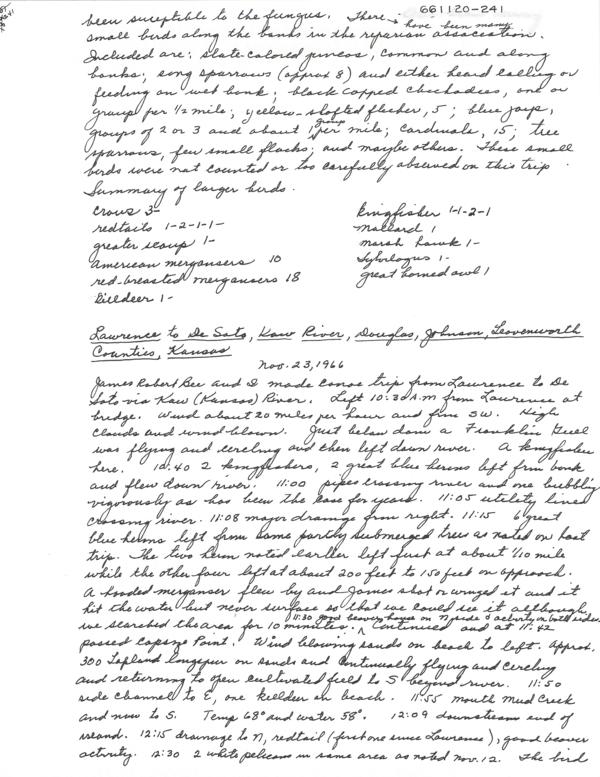 661120-241
been suceptible to the fungus. There have been many
small birds along the banks in the reparian assocation.
Included are: slate-colored juncos, common and along
banks; song sparrows (approx 8) and either heard calling or
feeding on wet bank; black capped chickadees, one or
group per 1/2 mile; yellow-shafted flicker, 5; blue jays,
groups of 2 or 3 and about 1 group per mile; cardinals, 15; tree
sparrows, few small flocks; and maybe others. These small
birds were not counted or too carefully observed on this trip.
Summary of larger birds.
crows 3-
redtails 1-2-1-1-
greater scaup 1-
american mergansers 10
red-breasted mergansers 18
killdeer 1-
kingfisher 1-1-2-1
mallard 1
marsh hawk 1-
1-
great horned owl 1
Lawrence to De Soto, Kaw River, Douglas, Johnson, Leavenworth
Counties, Kansas
Nov. 23, 1966
James Robert Bee and I made canoe trip from Lawrence to De
Soto via Kaw (Kansas) River. Left 10:30 A.M from Lawrence at
bridge. Wind about 20 miles per hour and from SW. High
clouds and wind-blown. Just below dam a Franklin Gull
was flying and circling and then left down river. A kingfisher
here. 10:40 2 kingfishers, 2 great blue herons left from bank
and flew down river. 11:00 pipes crossing river and one bubbling
vigorously as has been the case for years. 11:05 utility lines
crossing river. 11:08 major drainage from right. 11:15 6 great
blue herons left from some partly submerged trees as noted on last
trip. The two heron noted earlier left first at about 1/10 mile
while the other four left at about 200 feet to 150 feet on approach.
A hooded merganser flew by and James shot or winged it and it
hit the water but never surface so that we could see it although
we searched the area for 10 minutes. 11:30 good beaver house on N side & activity on both sides. Continued and at 11:42
passed Capsize Point. Wind blowing sands on beach to left. Approx.
300 Lapland Longspur on sands and continually flying and circling
and returning to open cultivated field to S beyond river. 11:50
side channel to E, one killdeer on beach. 11:55 mouth Mud Creek
and now to S. Temp 68° and water 58°. 12:09 downstream end of
island. 12:15 drainage to N, redtail (first one since Lawrence), good beaver
activity. 12:30 2 white pelicans in same area as noted Nov. 12. The bird